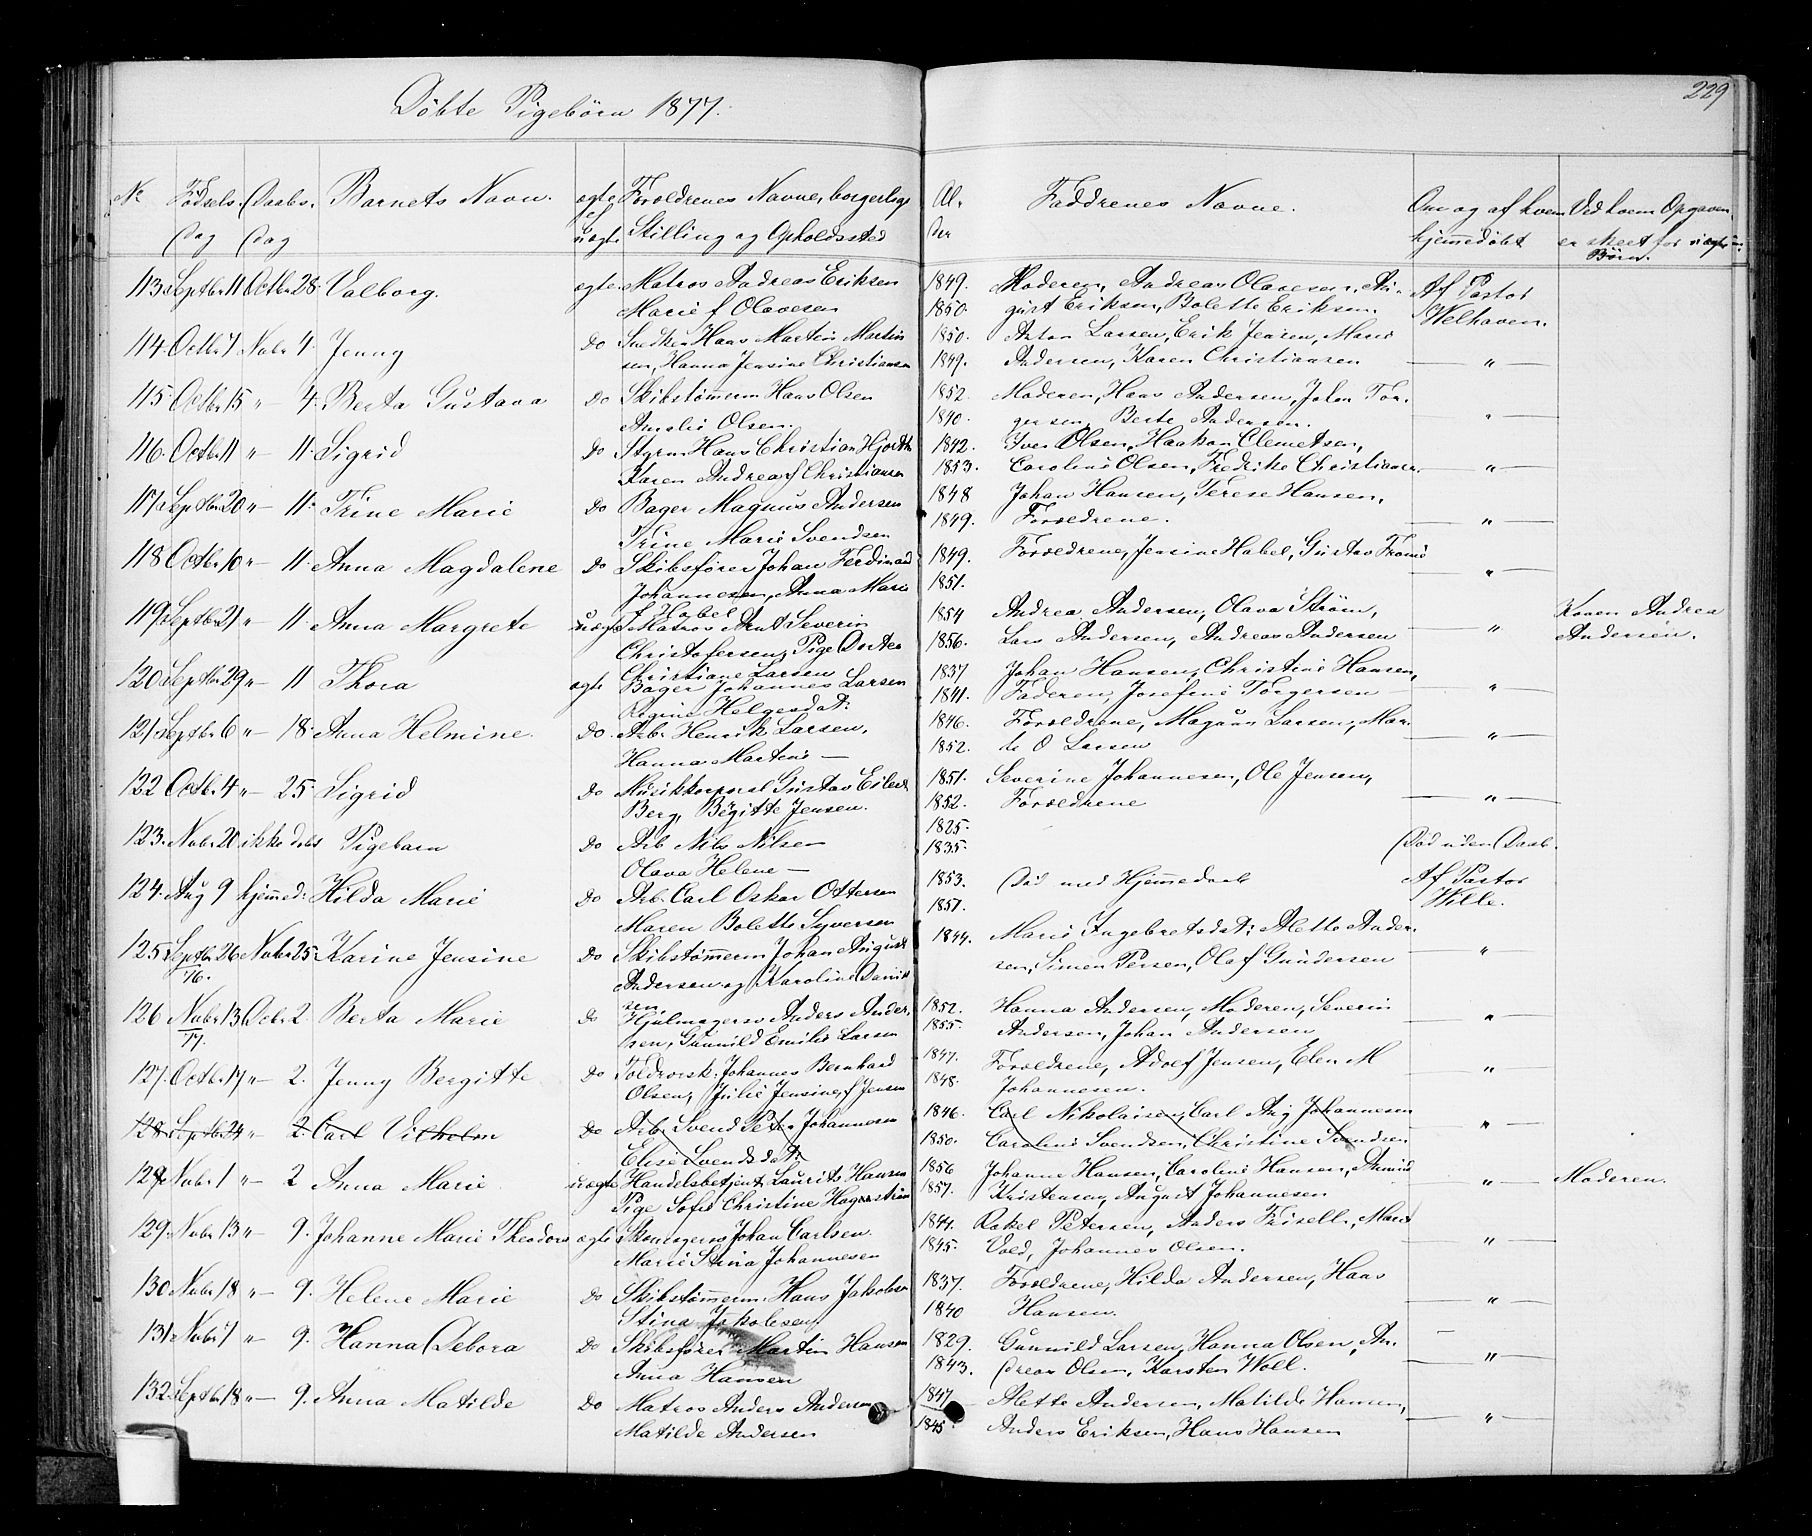 229
Döbte Pigebörn 1877.
No Födsels Daabs. Barnets Navn. ægte Forældrenes Navne, borgerlige Al. Faddrenes Navne. Om og af hvem Ved hvem Opgaven
Dag Dag uægte Stilling og Opholdssted der hjemmedöbt er skeet for uægte
Börn.
113. Septbr 11 Octbr 28 Valborg. ægte. Matros Andreas Eriksen 1849. Moderen, Andreas Olavesen, Au- Af Pastor
Marie f Olavesen 1850. gust Eriksen, Bolette Eriksen. Welhaven.
114. Octbr 7 Nobr 4. Jenny Do Snedker Hans Martin Martin 1850. Anton Larsen, Erik Jensen, Marie
sen, Hanna Jensine Christiansen 1849. Andersen, Karen Christiansen — " —
115. Octbr 15 " 4. Berta Gustava Do Skibstömmerm Hans Olsen 1852. Moderen, Hans Andersen, John Tor-
Amalie Olsen. 1840. gersen, Berte Andersen. — " —
116. Octbr 11 " 11. Sigrid Do Styrm Hans Christian Hjorth 1842. Iver Olsen, Haakon Clemetsen,
Karen Andrea f Christiansen 1853. Caroline Olsen, Fredrike Christiansen — " —
117. Septbr 20 " 11. Trine Marie Do Bager Magnus Andersen 1848 Johan Hansen, Terese Hansen,
Trine Marie Svendsen 1849. Forældrene. — " —
118 Octbr 10 " 11. Anna Magdalene Do Skibsförer Johan Ferdinand 1849. Forældrene, Jensine Habel, Gustav
Johannesen, Anna Marie 1851. — " —
f Habel
119. Septbr 21 " 11. Anna Margrete uægte Matros Arnt Severin 1854 Andrea Andersen, Olava Ström, Karen Andrea
Christofersen, Pige Dortea 1856. Lars Andersen, Andreas Andersen — " — Andersen.
Christiane Larsen
120 Septbr 29 " 11 Thora ægte Bager Johannes Larsen 1837 Johan Hansen, Christine Hansen,
Regine Helgesdat: 1841. Faderen, Josefine Torgersen — " —
121. Septbr 6 " 18. Anna Helmine. Do. Arb. Henrik Larsen, 1846. Forældrene, Magnus Larsen, Mar-
Hanna Martine — 1852. te O Larsen — " —
122 Octbr 4 " 25 Sigrid Do Musikkorporal Gustav Eilert 1851. Severine Johannesen, Ole Jensen,
Berg, Bergitte Jensen. 1852. Forældrene — " —
123. Nobr 20 ikke döbt Pigebarn Do Arb Nils Nilsen 1825. Död uden Daab.
Olava Helene — 1835.
124. Aug 9 hjemmed: Hilda Marie Do Arb. Carl Oskar Ottersen 1853. Död med Hjemmedaab Af Pastor
Maren Bolette Syversen 1857. Wille.
125 Septbr 26 Nobr 25 Karine Jensine Do Skibstömmerm Johan August 1844. Marie Ingebretsdat: Alette Ander-
76. Andersen og Karoline Daniel sen, Simen Persen, Olaf Gundersen — " —
sen
126 Nobr 13 Decbr 2. Berta Marie Do Hjulmagersv Anders Ander- 1852. Hanna Andersen, Moderen, Severin
77. sen, Gunnild Emilie Larsen 1855. Andersen, Johan Andersen — " —
127. Octbr 17 " 2. Jenny Bergitte Do Toldrorsk. Johannes Bernhard 1847. Forældrene, Adolf Jensen, Elen M
Olsen, Julie Jensine f Jensen 1848. Johannesen. — " —
128. Septbr 24 " 2. Carl Vilhelm Do Arb. Svend Peter Johannesen 1846. Carl Nikolaisen, Carl Aug Johannesen
Elise Svendsdat: 1850. Caroline Svendsen, Christine Svendsen — " —
128. Nobr 1 " 2 Anna Marie. uægte Handelsbetjent Laurits Hansen 1856 Johanne Hansen, Caroline Hansen, — " — Moderen.
Pige Sofie Christine Hagerström 1857. Kristensen, August Johannesen
129. Nobr 13 " 9. Johanne Marie Theodora ægte Skomagersv Johan Carlsen. 1844. Rakel Petersen, Anders Frisell, Marie
Marie Stina Johannesen 1845. Vold, Johannes Olsen. — " —
130 Nobr 18 " 9. Helene Marie Do Skibstömmerm Hans Jakobsen 1837. Forældrene, Hilda Andersen, Hans
Stina Jakobsen 1840 Hansen. — " —
131. Nobr 7 " 9. Hanna Debora Do Skibsförer Martin Hansen 1829. Gunnild Larsen, Hanna Olsen, An-
Anna Hansen 1843. dreas Olsen, Karsten Woll. — " —
132. Septbr 18 " 9. Anna Matilde Do Matros Anders Andersen 1847 Alette Andersen, Matilde Hansen,
Matilde Andersen 1845. Anders Eriksen, Hans Hansen — " —